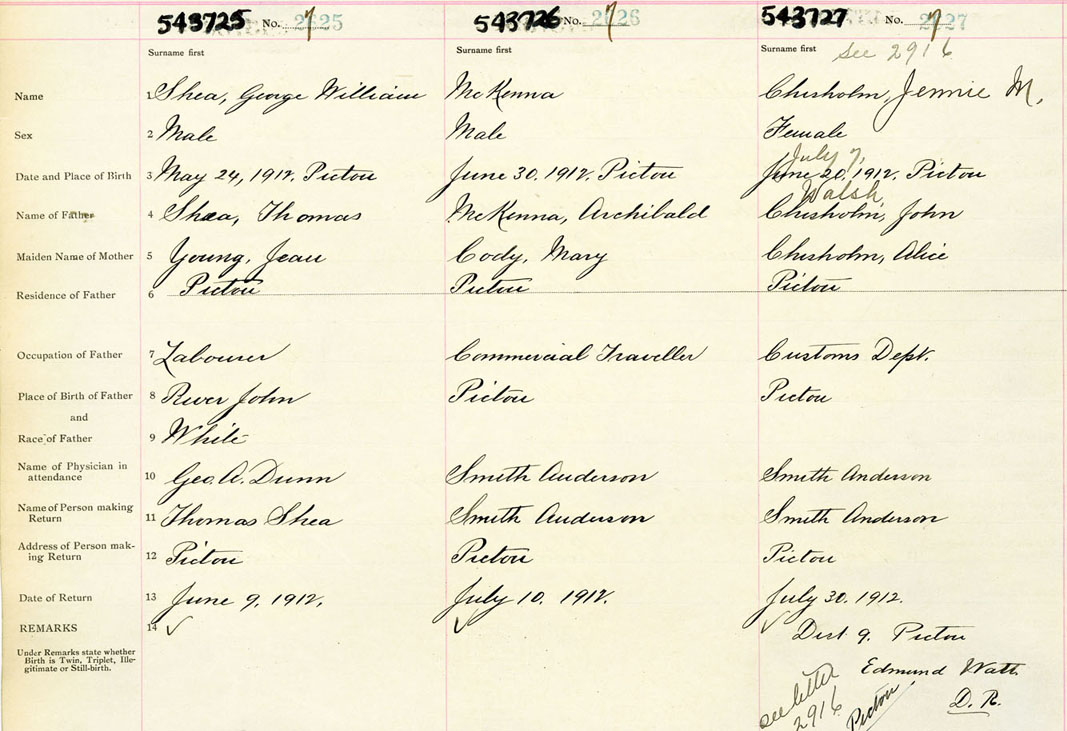 543725 No. 7 2725 543726 No. 7 2726 543727 No. 7 2727
Surname first Surname first Surname first see 2916
Name 1 Shea, George William McKenna Chisholm, Jennie M.
Sex 2 Male Male Female
July 7,
Date and Place of Birth 3 May 24, 1912. Pictou June 30. 1912. Pictou June 20, 1912. Pictou
Walsh,
Name of Father 4 Shea, Thomas McKenna, Archibald Chisholm, John
Maiden Name of Mother 5 Young, Jean Cody, Mary Chisholm, Alice
Residence of Father 6 Pictou Pictou Pictou
Occupation of Father 7 Labourer Commercial Traveller Customs Dept.
Place of Birth of Father 8 River John Pictou Pictou
and
Race of Father 9 White
Name of Physician in
attendance 10 Geo. A. Dunn Smith Anderson Smith Anderson
Name of Person making
Return 11 Thomas Shea Smith Anderson Smith Anderson
Address of Person mak-
ing Return 12 Pictou Pictou Pictou
Date of Return 13 June 9, 1912. July 10. 1912. July 30. 1912.
REMARKS 14 ✓ ✓ ✓ Dist 9. Pictou
Under Remarks state whether
Birth is Twin, Triplet, Ille-
gitimate or Still-birth.
Edmund Watt
D. R.
see letter
2916
Pictou